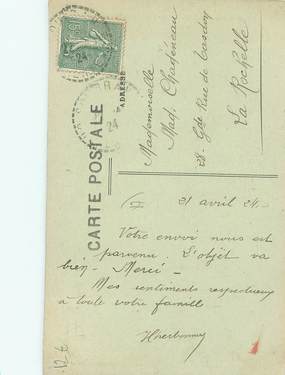 CARTE POSTALE
ADRESSE
Mademoiselle
Mad. Chadéneau
28 - Gde Rue de
La Rochelle
21 avril 24 -
Votre envoi nous est
parvenu L'objet va
bien - Merci -
Mes sentiments respectueux
à toute votre famille
24
24